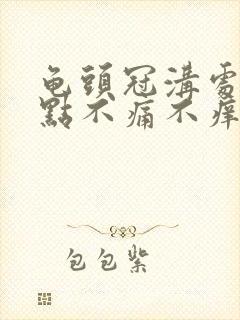 龟頭冠溝處
點不痛不痒
包包紫